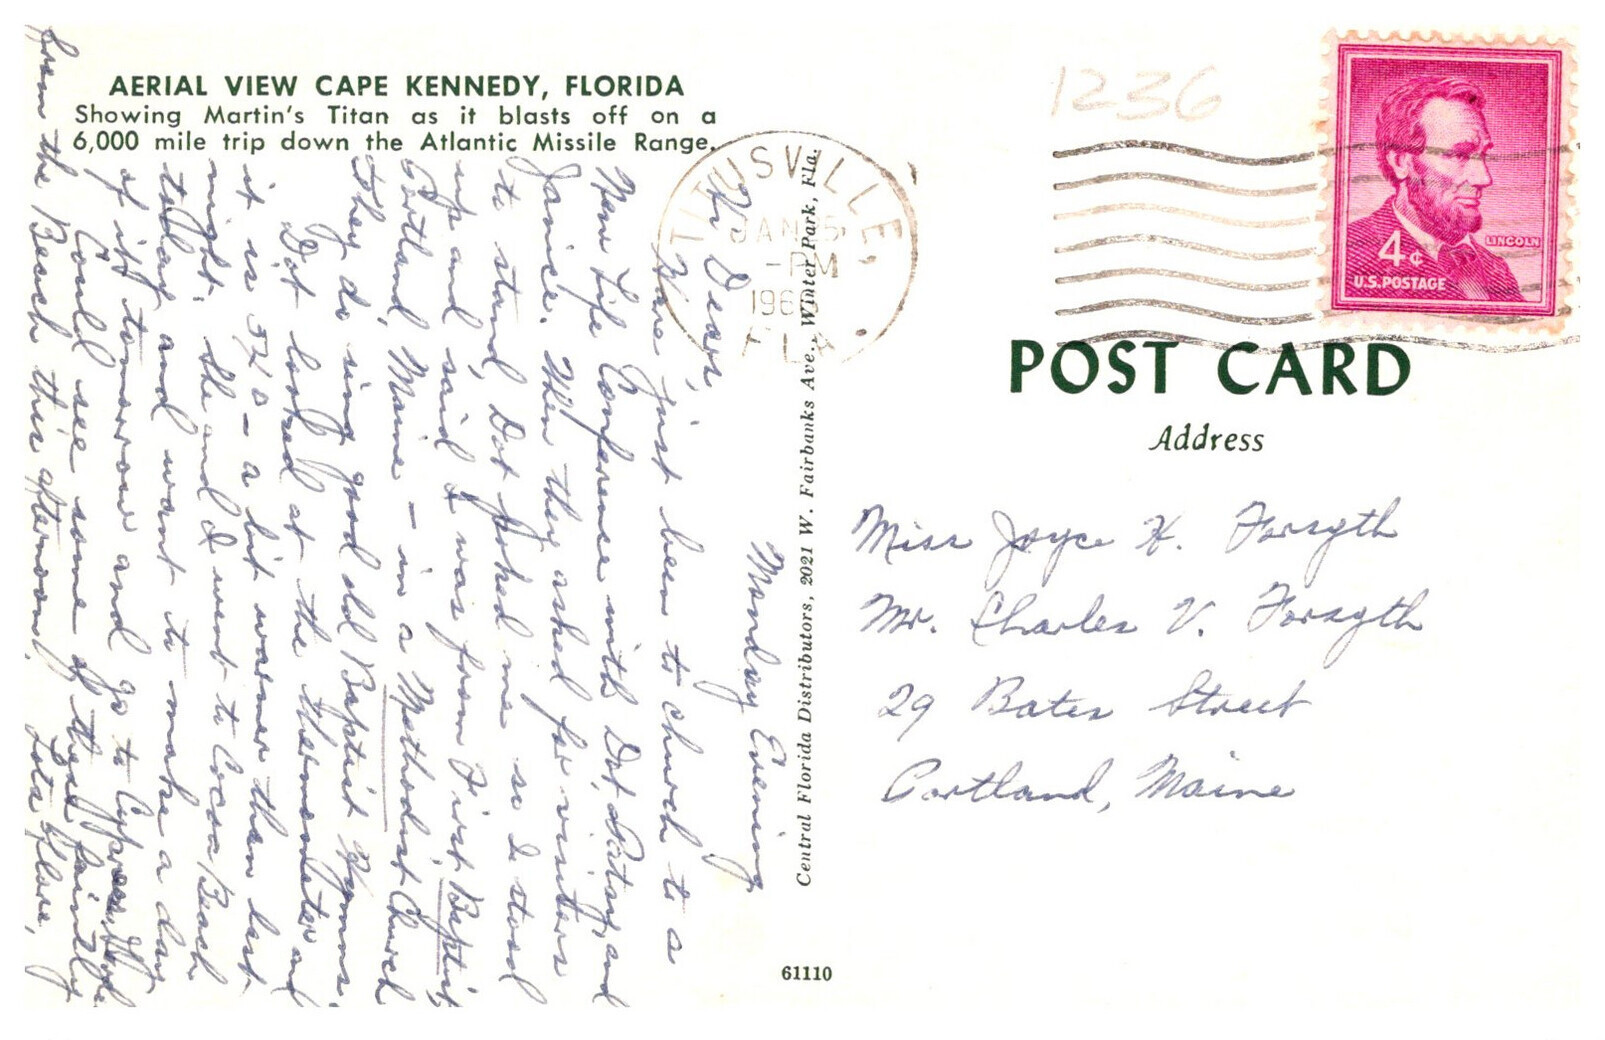 AERIAL VIEW CAPE KENNEDY, FLORIDA
Showing Martin's Titan as it blasts off on a
6,000 mile trip down the Atlantic Missile Range.
Monday Evening
Hi Dears,
Have just been to church to a
New Life Conference with Dot, and
Janice. When they asked for visitors
to stand, Dot poked me so I stood
up and said I was from First Baptist
Portland, Maine - in a Methodist Church
They do sing good old Baptist Hymns.
Dot looked at the thermometer and
it is 520 - a bit warmer than last
night. She and I went to Cocoa Beach
today and want to make a day
of it tomorrow and go to Cypress
Could see some of these faintly
from the Beach this afternoon.
Lots Love,
Central Florida Distributors, 2021 W. Fairbanks Ave., Winter Park, Fla.
61110
1236
TITUSVILLE,
JAN
-PM
196
FLA
LINCOLN
4¢
U.S. POSTAGE
POST CARD
Address
Miss Joyce H. Forsyth
Mr. Charles V. Forsyth
29 Bates Street
Portland, Maine